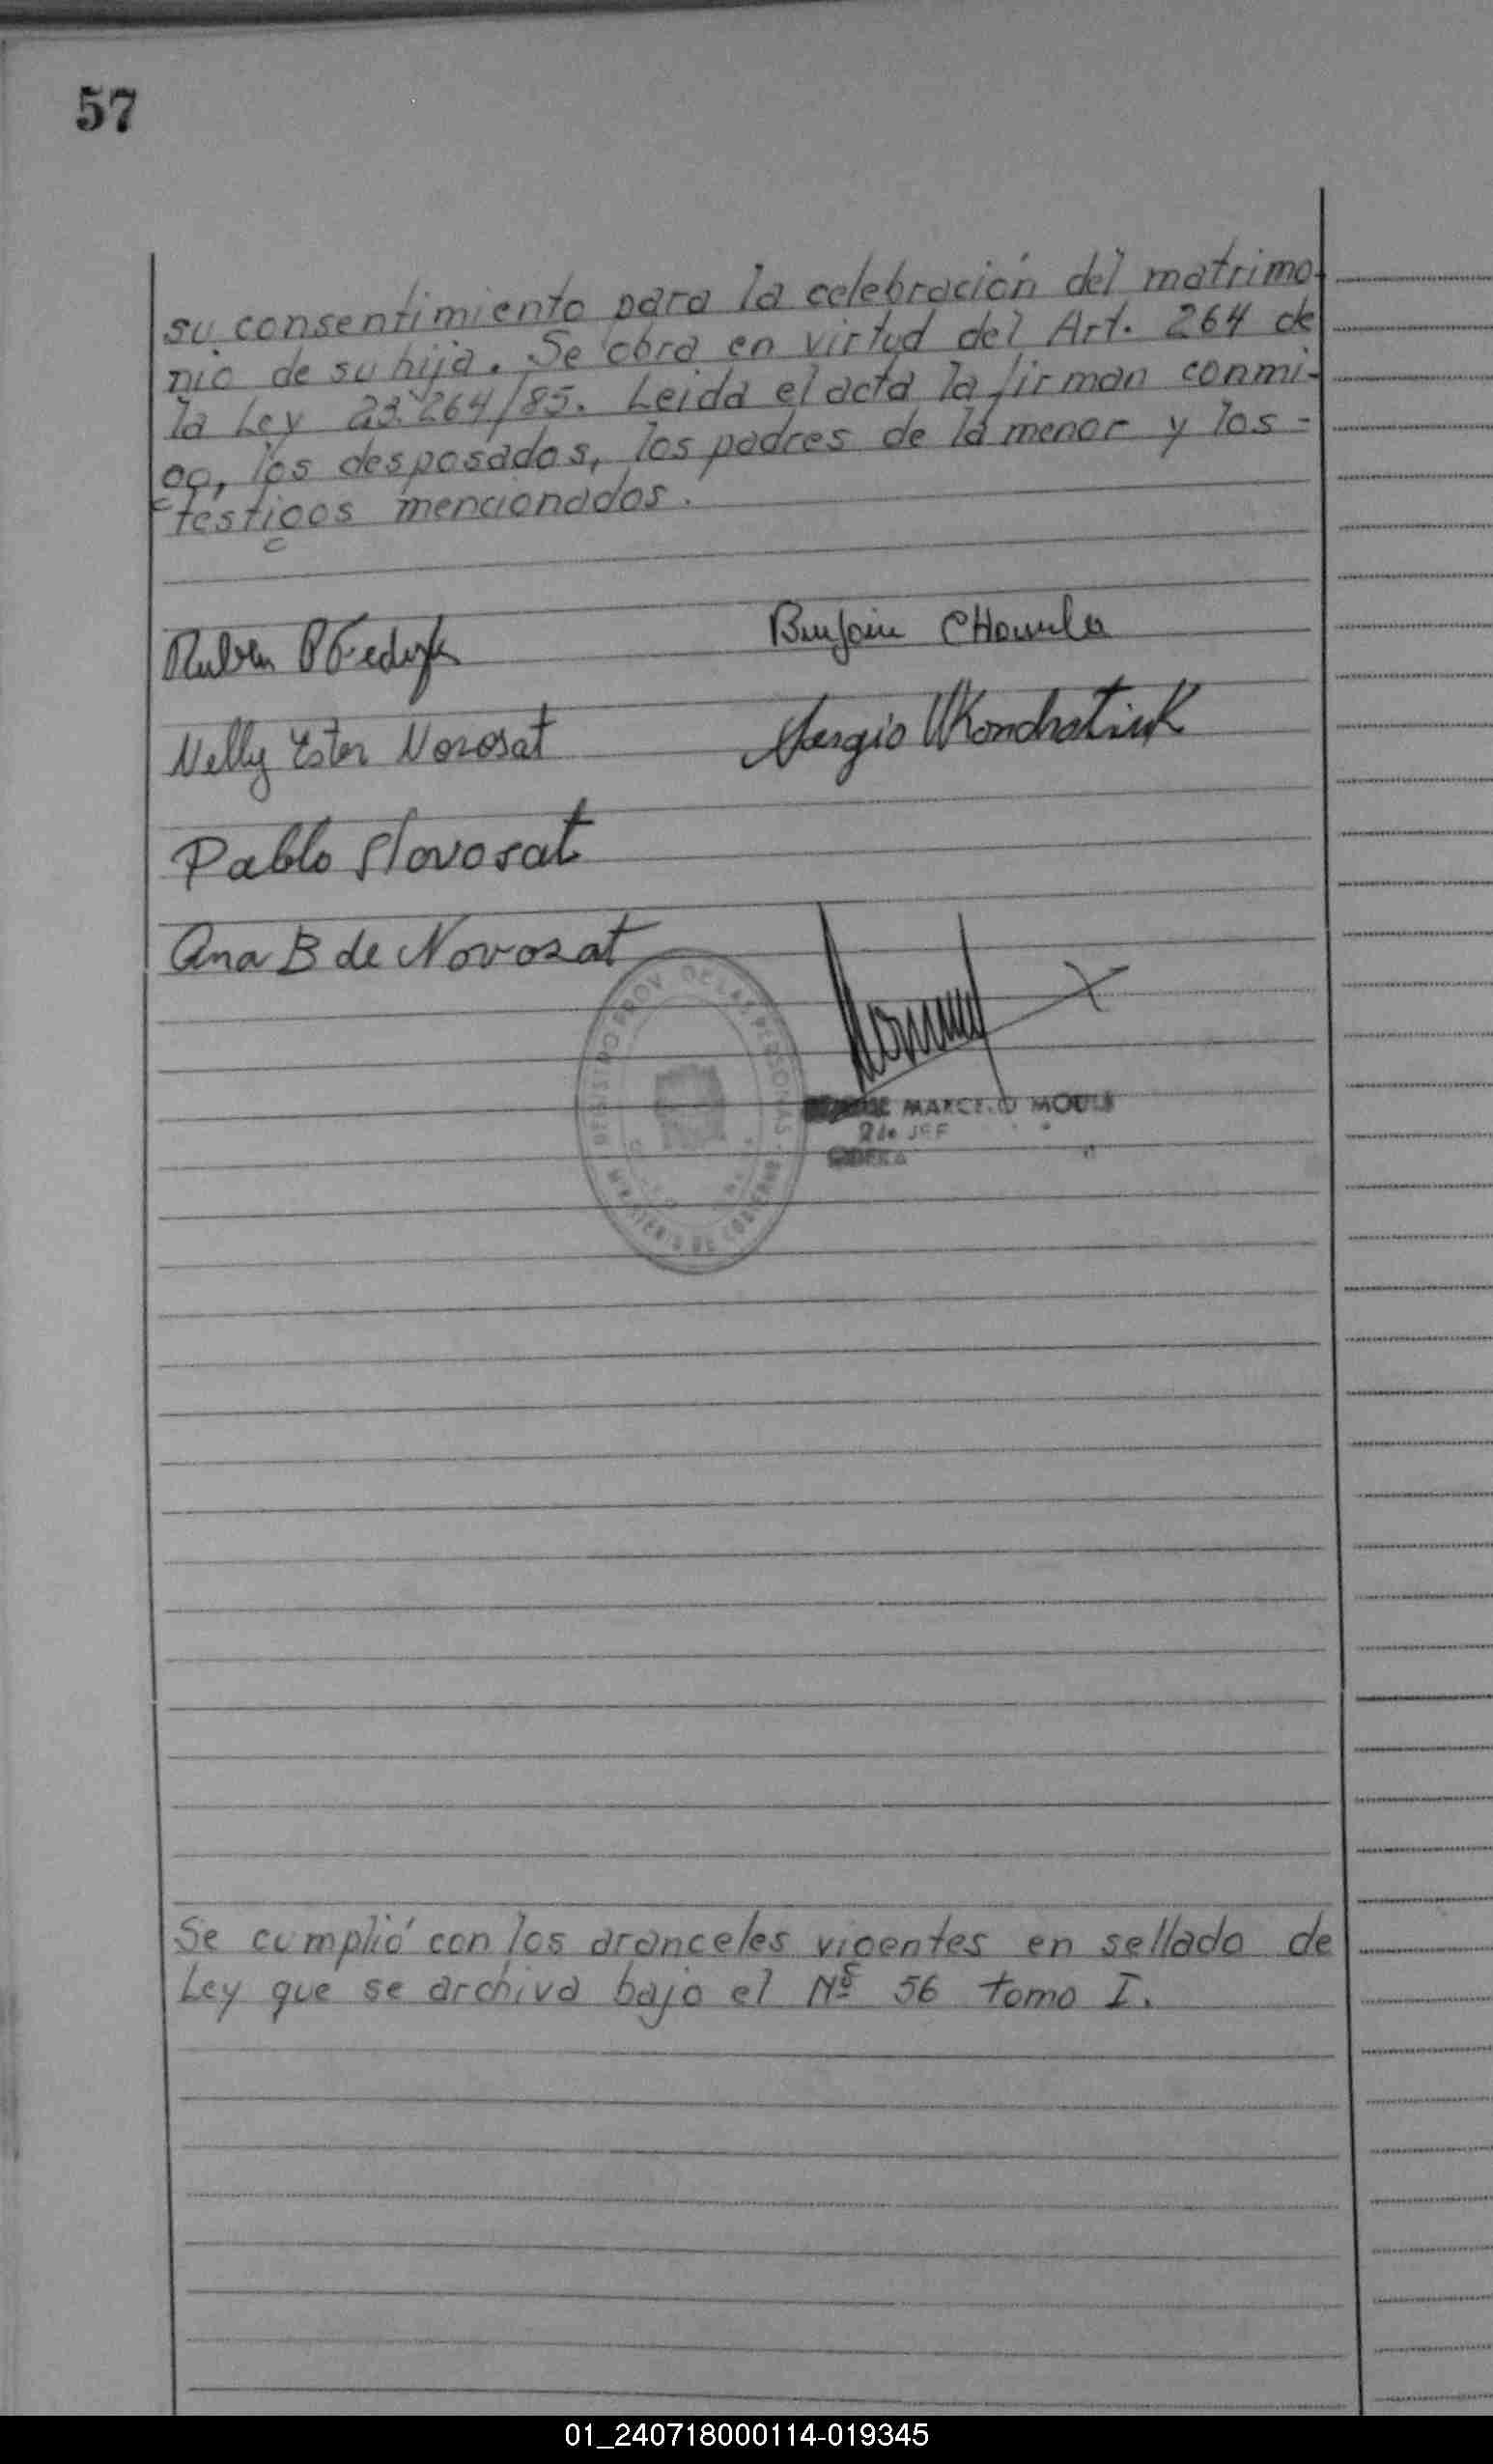 57
su consentimiento para la celebración del matrimo-
nio de su hija. Se obra en virtud del Art. 264 de
la Ley 23.264/85. Leida el acta la firman conmi-
go, los desposados, los padres de la menor y los =
testigos mencionados.
Ruben
Nelly Ester Novosat
Sergio Kondratiuk
Pablo Novosat
Ana B de Novosat
REGISTRO PROV. DE LAS PERSONAS
MINISTERIO DE GOBIERNO
MARCELO
Se cumplió con los aranceles vigentes en sellado de
Ley que se archiva bajo el Nº 56 tomo I.
01_240718000114-019345